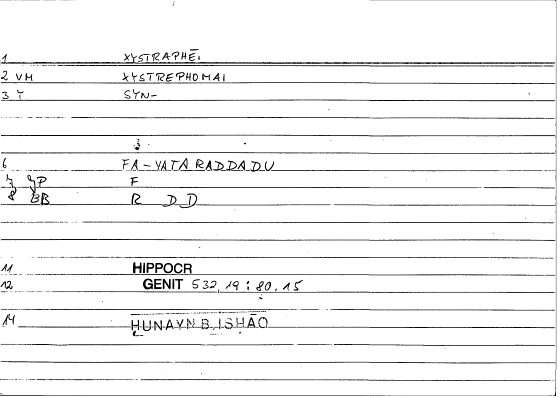 1 XYSTRAPHĒI
2 VM XYSTREPHOMAI
3 Y SYN-
6 FA-YATARADDADU
7 P F
8 BB R DD
11 HIPPOCR
12 GENIT 532,19 : 80.15
14 HUNAYN B. ISHĀQ